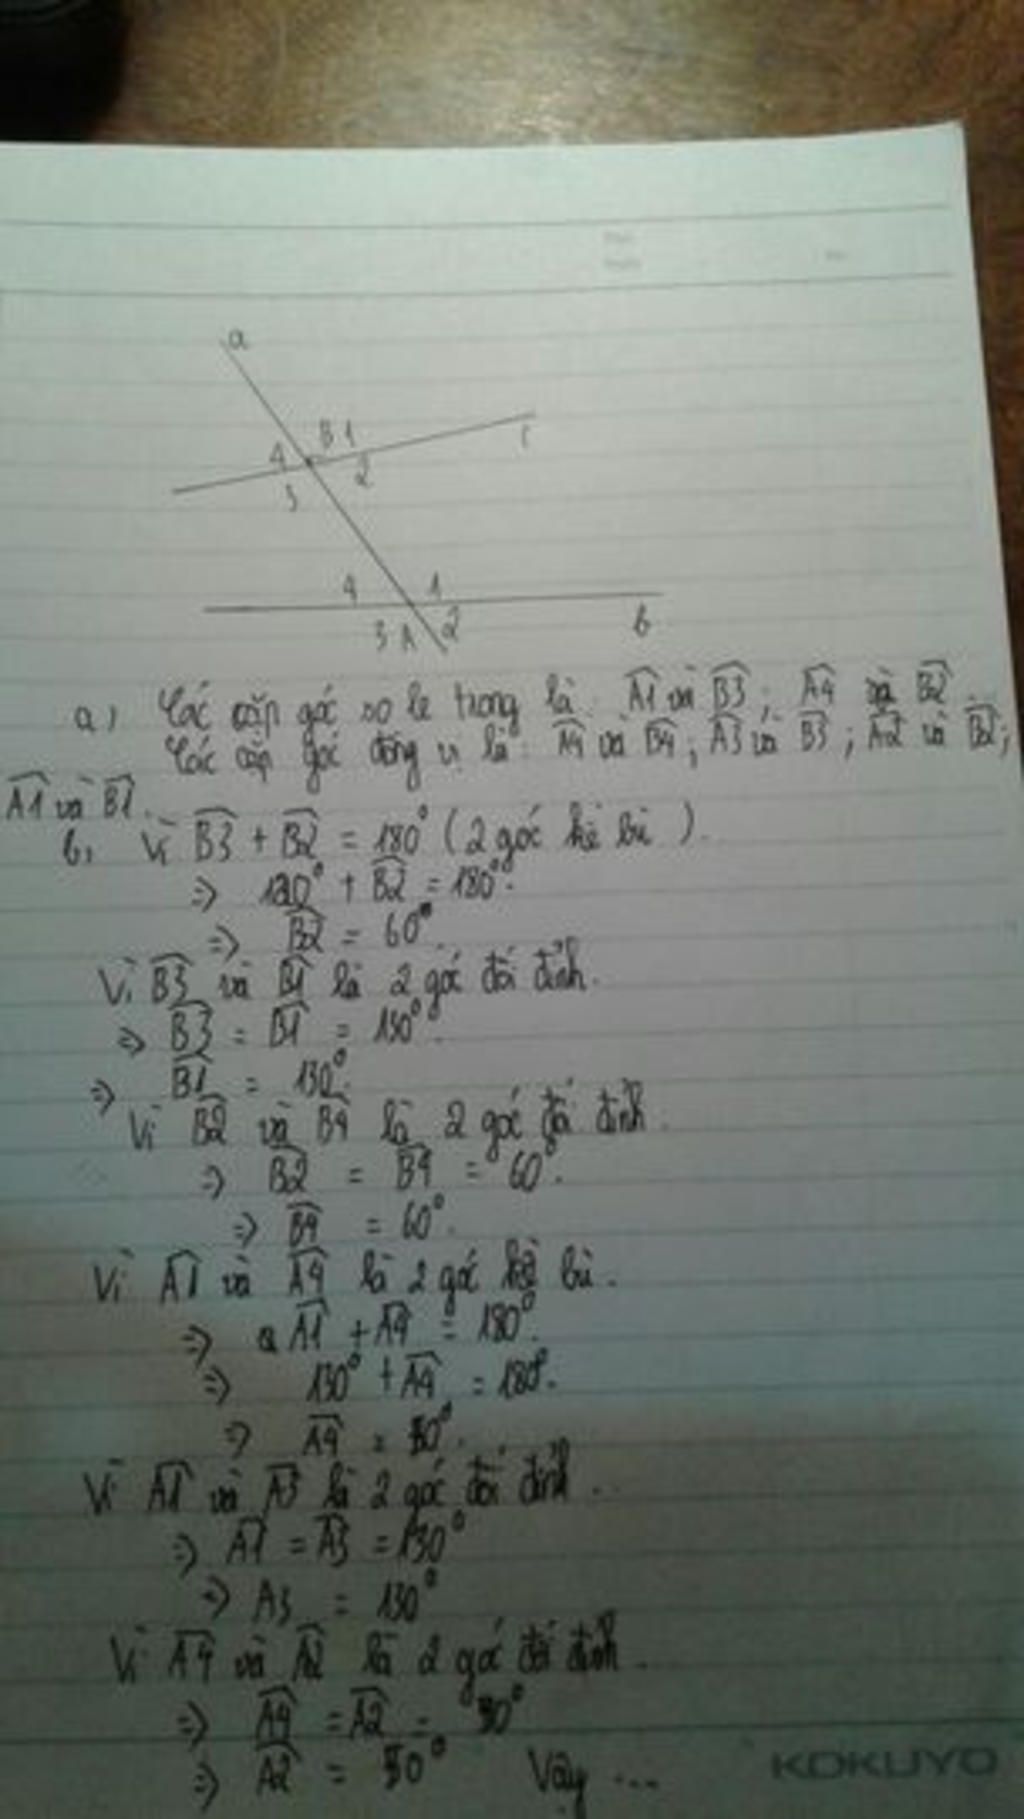 a
B 1
4
2
c
3
4
1
3 A 2
b
a) Các cặp góc so le trong là: A1 và B3; A4 và B2.
Các cặp góc đồng vị là: A4 và B4; A3 và B3; A2 và B2;
A1 và B1.
b, Vì B3 + B2 = 180° (2 góc kề bù).
=> 120° + B2 = 180°.
=> B2 = 60°.
Vì B3 và B1 là 2 góc đối đỉnh.
=> B3 = B1 = 130°.
=> B1 = 130°.
Vì B2 và B4 là 2 góc đối đỉnh.
=> B2 = B4 = 60°.
=> B4 = 60°.
Vì A1 và A4 là 2 góc kề bù.
=> A1 + A4 = 180°.
=> 130° + A4 = 180°.
=> A4 = 50°.
Vì A1 và A3 là 2 góc đối đỉnh.
=> A1 = A3 = 130°
=> A3 = 130°
Vì A4 và A2 là 2 góc đối đỉnh.
=> A4 = A2 = 50°
=> A2 = 50° Vậy ...
KOKUYO